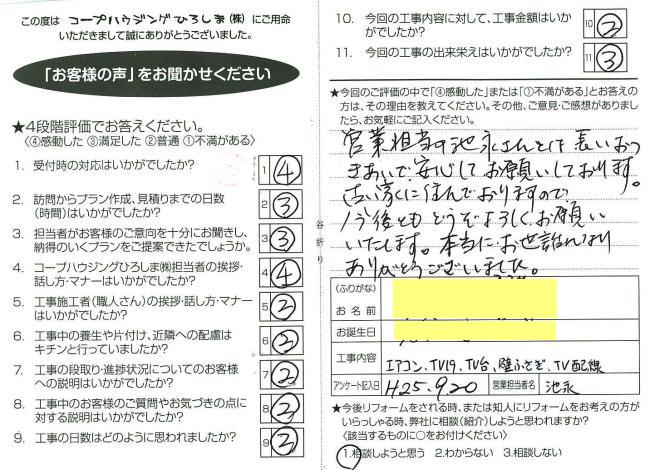 この度は コープハウジングひろしま(株) にご用命
いただきまして誠にありがとうございました。
「お客様の声」をお聞かせください
★4段階評価でお答えください。
〈④感動した ③満足した ②普通 ①不満がある〉
1. 受付時の対応はいかがでしたか? 1 4
2. 訪問からプラン作成、見積りまでの日数
(時間)はいかがでしたか? 2 3
3. 担当者がお客様のご意向を十分にお聞きし、
納得のいくプランをご提案できたでしょうか。 3 3
4. コープハウジングひろしま㈱担当者の挨拶・
話し方・マナーはいかがでしたか? 4 4
5. 工事施工者(職人さん)の挨拶・話し方・マナー
はいかがでしたか? 5 2
6. 工事中の養生や片付け、近隣への配慮は
キチンと行っていましたか? 6 2
7. 工事の段取り・進捗状況についてのお客様
への説明はいかがでしたか? 7 2
8. 工事中のお客様のご質問やお気づきの点に
対する説明はいかがでしたか? 8 2
9. 工事の日数はどのように思われましたか? 9 3
谷折り
10. 今回の工事内容に対して、工事金額はいか
がでしたか? 10 2
11. 今回の工事の出来栄えはいかがでしたか? 11 3
★今回のご評価の中で「④感動した」または「①不満がある」とお答え
の方は、その理由を教えてください。その他、ご意見・ご感想がありまし
たら、お気軽にご記入ください。
営業担当の池永さんとは長いおつ
きあいで安心してお願いしております。
古い家に住んでおりますので
今後ともどうぞよろしくお願い
いたします。本当にお世話になり
ありがとうございました。
(ふりがな)
お名前
お誕生日
工事内容 エアコン、TV19、TV台、壁ふさぎ、TV配線
アンケート記入日 H25.9.20 営業担当者名 池永
★今後リフォームをされる時、または知人にリフォームをお考えの方が
いらっしゃる時、弊社に相談(紹介)しようと思われますか?
〈該当するものに○をお付けください〉
1.相談しようと思う 2.わからない 3.相談しない